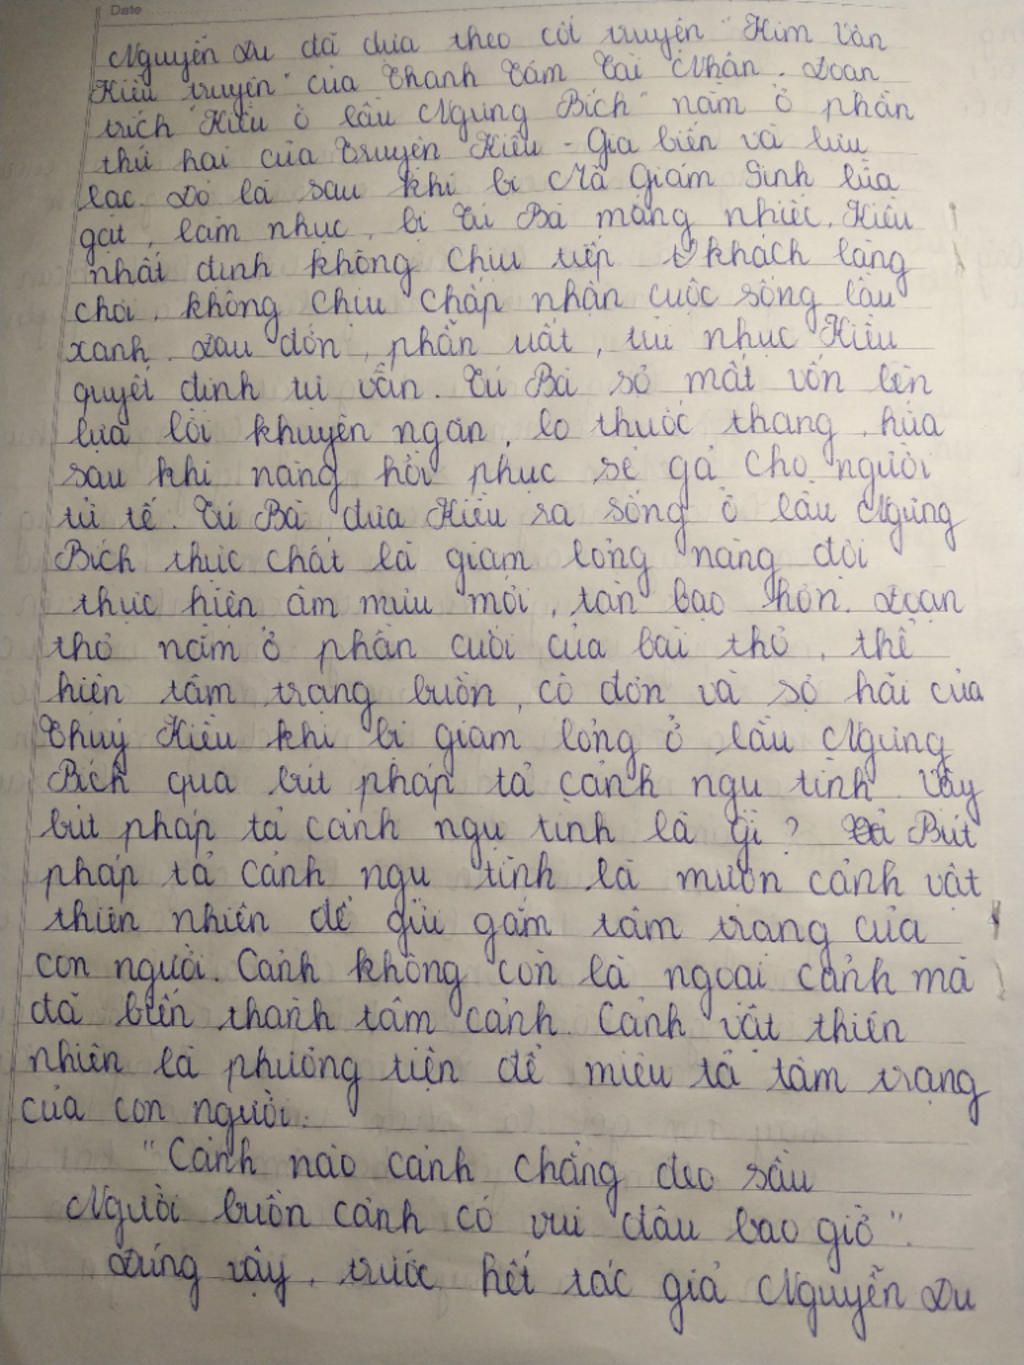 Date
Nguyễn Du đã dựa theo cốt truyện "Kim Vân
Kiều truyện" của Thanh Tâm Tài Nhân. Đoạn
trích "Kiều ở lầu Ngưng Bích" nằm ở phần
thứ hai của Truyện Kiều - Gia biến và lưu
lạc. Đó là sau khi bị Mã Giám Sinh lừa
gạt, làm nhục, bị Tú Bà mắng nhiếc, Kiều
nhất định không chịu tiếp khách làng
chơi, không chịu chấp nhận cuộc sống lầu
xanh. Đau đớn, phẫn uất, tủi nhục Kiều
quyết định tự vẫn. Tú Bà sợ mất vốn bèn
lựa lời khuyên ngăn, lo thuốc thang, hứa
sau khi nàng hồi phục sẽ gả cho người
tử tế. Tú Bà đưa Kiều ra sống ở lầu Ngưng
Bích thực chất là giam lỏng nàng đợi
thực hiện âm mưu mới, tàn bạo hơn. Đoạn
thơ nằm ở phần cuối của bài thơ, thể
hiện tâm trạng buồn, cô đơn và sợ hãi của
Thuý Kiều khi bị giam lỏng ở lầu Ngưng
Bích qua bút pháp tả cảnh ngụ tình. Vậy
bút pháp tả cảnh ngụ tình là gì? Bút
pháp tả cảnh ngụ tình là mượn cảnh vật
thiên nhiên để gửi gắm tâm trạng của
con người. Cảnh không còn là ngoại cảnh mà
đã biến thành tâm cảnh. Cảnh vật thiên
nhiên là phương tiện để miêu tả tâm trạng
của con người.
"Cảnh nào cảnh chẳng đeo sầu
Người buồn cảnh có vui đâu bao giờ".
Đúng vậy, trước hết tác giả Nguyễn Du